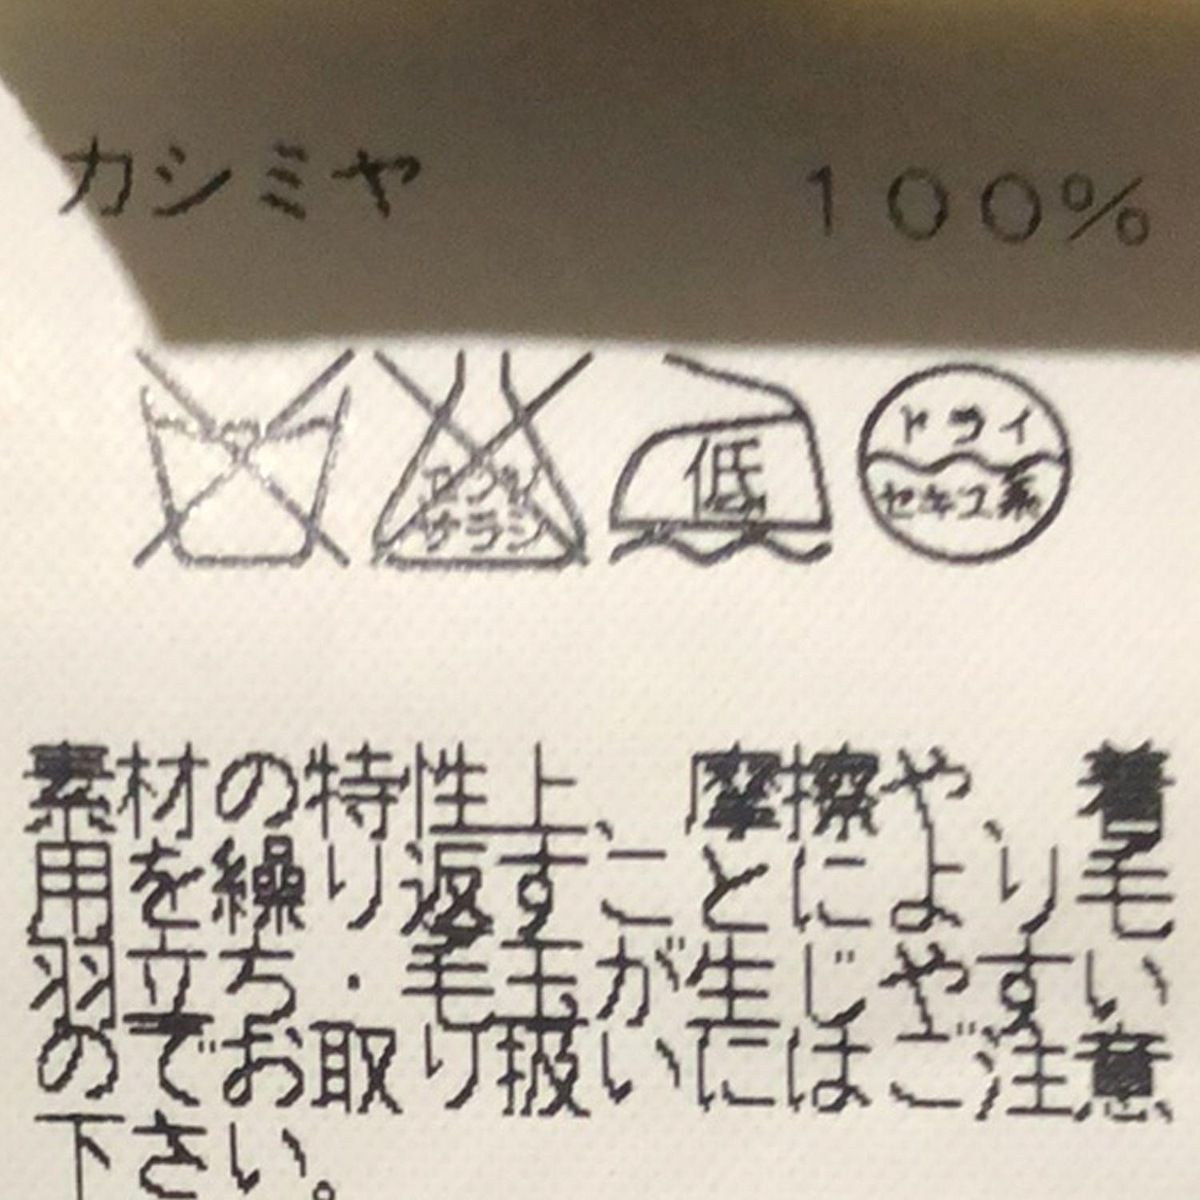 カシミヤ 100%
エンソ
サラシ
低
ドライ
セキユ系
素材の特性上、摩擦や、着
用を繰り返すことにより毛
羽立ち・毛玉が生じやすい
のでお取り扱いにはご注意
下さい。